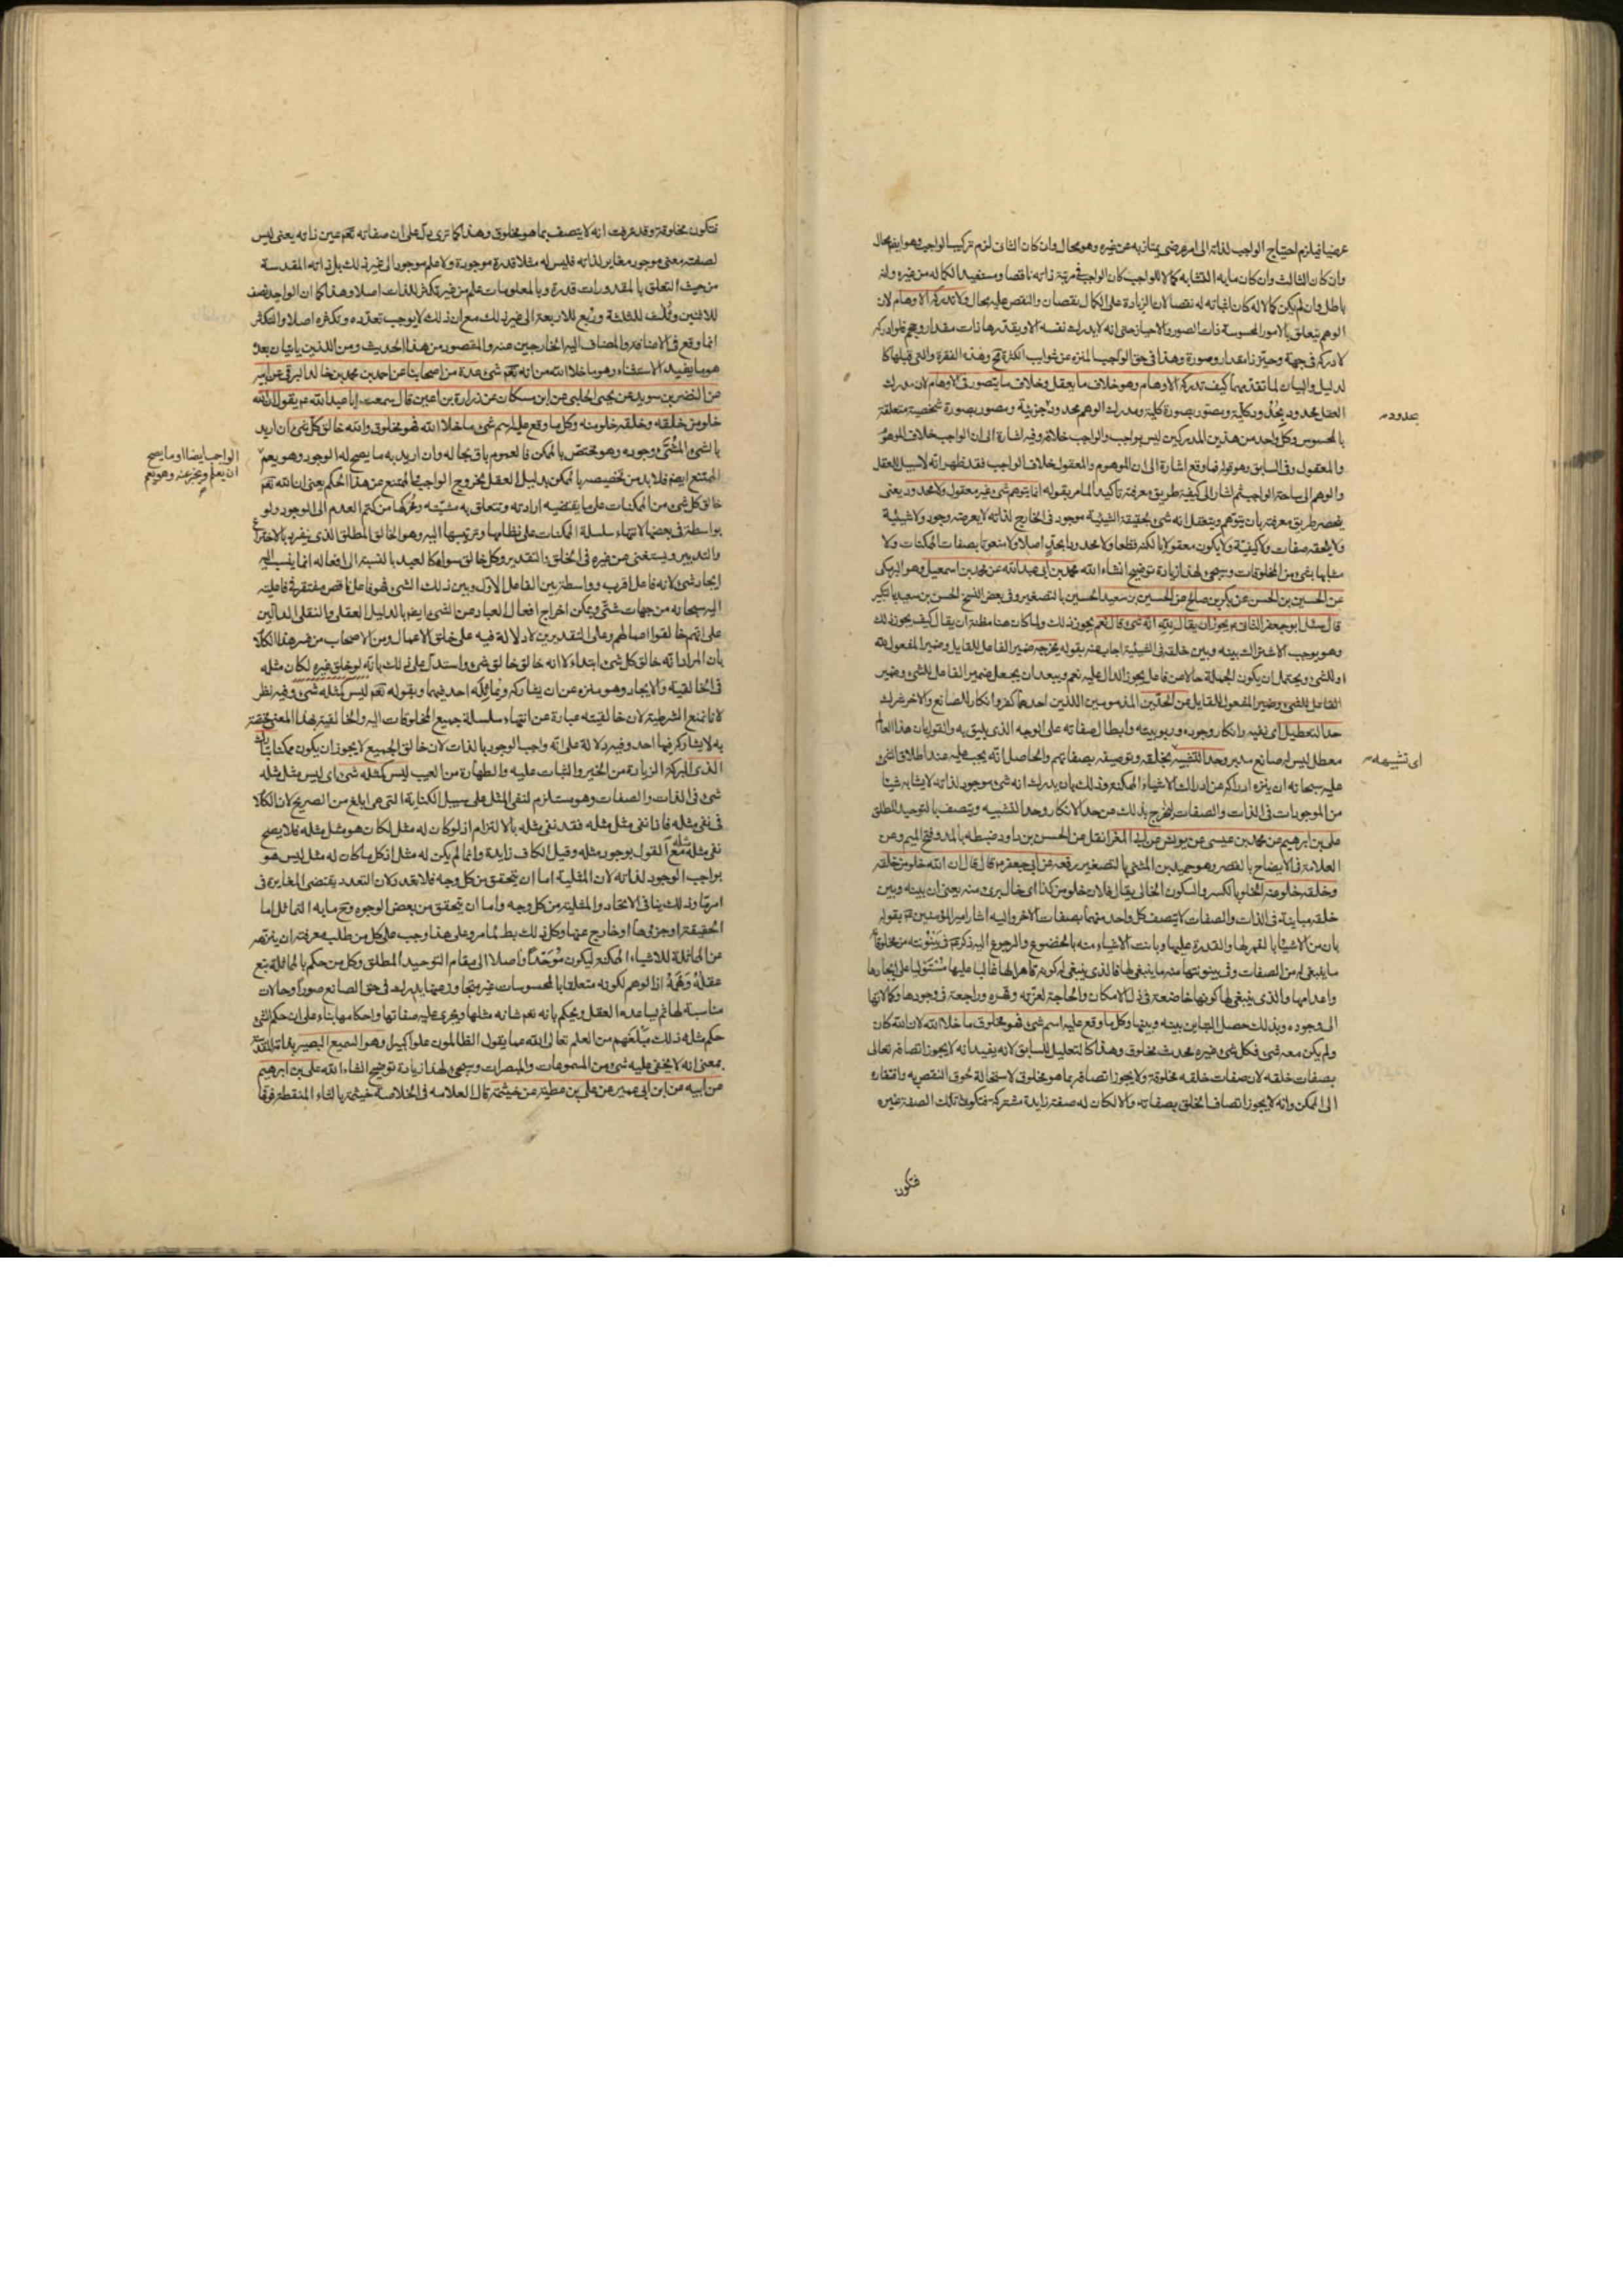 عرضيا فيلزم احتياج الواجب لذاته الى امر عرضي يمتاز به عن غيره وهو محال وان كان الثاني لزم تركيب الواجب وهو ايضا محال
وان كان الثالث وان كان ما به التشابه كمالا للواجب كان الواجب في مرتبة ذاته ناقصا ومستفيدا لكماله من غيره وانه
باطل وان لم يكن كمالا له كان اثباته له نقصا لان الزيادة على الكمال نقصان والنقص عليه محال ولا تدركه الاوهام لان
الوهم يتعلق بالامور المحسوسة ذات الصور والاحياز حتى انه لا يدرك نفسه الا ويقدرها ذات مقدار وحجم فلو ادركه
لادركه في جهة وحيز ذا مقدار وصورة وهذا في حق الواجب المنزه عن شوائب الكثرة مح وهذه الفقرة والتي قبلها كا
لدليل والبيان لما تقدمهما كيف تدركه الاوهام وهو خلاف ما يعقل وخلاف ما يتصور في الاوهام لان مدرك
العقل محدود بحدود كلية ويصور بصورة كلية ومدرك الوهم محدود جزئية ومصور بصورة شخصية متعلقة
بحدود
بالمحسوس وكل واحد من هذين المدركين ليس بواجب والواجب خلافه وفيه اشارة الى ان الواجب خلاف الموهوم
والمعقول وفي السابق وهو قوله فما وقع اشارة الى ان الموهوم والمعقول خلاف الواجب فقد ظهر انه لا سبيل للعقل
والوهم الى ساحة الواجب ثم اشار الى كيفية طريق معرفته تأكيدا لما مر بقوله انما يتوهم شئ غير معقول ولا محدود يعنى
ينحصر طريق معرفته بان يتوهم ويتعقل انه شئ بحقيقة الشيئية موجود في الخارج لذاته لا يعرضه وجود ولا شيئية
ولا يلحقه صفات ولا كيفية ولا يكون معقولا بالكنه قطعا ولا محدودا بحد اصلا ولا منعوتا بصفات الممكنات ولا
مشابها بشئ من المخلوقات وسيجئ لهذا زيادة توضيح انشاء الله محمد بن ابي عبد الله عن محمد بن اسمعيل وهو البرمكى
عن الحسين بن الحسن عن بكر بن صالح عن الحسين بن سعيد الحسين بالتصغير وفى بعض النسخ الحسن بن سعيد بالتكبير
قال سئل ابو جعفر الثاني ع يجوز ان يقال لله انه شئ قال نعم يجوز ذلك ولما كان هنا مظنة ان يقال كيف يجوز ذلك
وهو يوجب الاشتراك بينه وبين خلقه في الشيئية اجاب عنه بقوله يخرجه ضمير الفاعل للقايل وضمير المفعول لله
او للشئ ويحتمل ان يكون الجملة حالا من فاعل يجوز الدال عليه نعم ويبعد ان يجعل ضمير الفاعل للشئ وضمير
الفاعل للشئ وضمير المفعول للقايل من الحدين المذمومين اللذين احدهما كفر وانكار للصانع والاخر شرك
حد التعطيل اى نفيه وانكار وجوده وربوبيته وابطال صفاته على الوجه الذى يليق به والقول بان هذا العالم
معطل ليس له صانع مدبر وحد التشبيه بخلقه وتوصيفه بصفاتهم والحاصل انه يجب عليه عند اطلاق الشئ
اى تشبيهه
عليه سبحانه ان ينزه ادراكه عن ادراك الاشياء الممكنة وذلك بان يدرك انه شئ موجود لذاته لا يشابه شيئا
من الموجودات فى الذات والصفات ليخرج بذلك من حد الانكار وحد التشبيه ويتصف بالتوحيد المطلق
على بن ابرهيم عن محمد بن عيسى عن يونس عن ابي المغرا نقل عن الحسن بن داود ضبطه بالمد وفتح الميم وعن
العلامة في الايضاح بالقصر وهو حميد بن المثنى بالتصغير رفعه عن ابي جعفر ع قال قال ان الله خلو من خلقه
وخلقه خلو منه الخلو بالكسر والسكون الخالى يقال فلان خلو من كذا اى خال برئ منه يعنى ان بينه وبين
خلقه مباينة فى الذات والصفات لا يتصف كل واحد منهما بصفات الاخر واليه اشار امير المؤمنين ع بقوله
بان من الاشياء بالقهر لها والقدرة عليها وبانت الاشياء منه بالخضوع والرجوع اليه ذكر ع فى بينونته من مخلوقاته
ما ينبغى له من الصفات وفى بينونتها منه ما ينبغى لها فالذى ينبغى له كونه قاهرا لها غالبا عليها مستوليا على ايجادها
واعدامها والذى ينبغى لها كونها خاضعة فى ذل الامكان والحاجة لعزته وقهره وراجعة فى وجودها وكمالاتها
الى وجوده وبذلك حصل التباين بينه وبينها وكل ما وقع عليه اسم شئ فهو مخلوق ما خلا الله لان الله كان
ولم يكن معه شئ فكل شئ غيره محدث مخلوق وهذا كالتعليل للسابق لانه يفيد انه لا يجوز اتصافه تعالى
بصفات خلقه لان صفات خلقه مخلوقة ولا يجوز اتصافه بما هو مخلوق لاستحالة لحوق النقص به وافتقاره
الى الممكن وانه لا يجوز اتصاف الخلق بصفاته والا لكان له صفة زايدة مشتركة فتكون تلك الصفة غيره
فتكون
فتكون مخلوقة وقد عرفت انه لا يتصف بما هو مخلوق وهذا كما ترى يدل على ان صفاته تعم عين ذاته يعنى ليس
لصفته معنى موجود مغاير لذاته فليس له مثلا قدرة موجودة ولا علم موجود الى غير ذلك بل ذاته المقدسة
من حيث التعلق بالمقدورات قدرة وبالمعلومات علم من غير تكثر للذات اصلا وهذا كما ان الواحد نصف
للاثنين وثلث للثلثة وربع للاربعة الى غير ذلك مع ان ذلك لا يوجب تعدده وتكثره اصلا والتكثر
انما وقع فى الاضافة والمضاف اليه الخارجين عنه والمقصود من هذا الحديث ومن اللذين ياتيان بعده
هو ما يفيده الاستثناء وهو ما خلا الله من انه تعم شئ عدة من اصحابنا عن احمد بن محمد بن خالد البرقى عن ابيه
عن النضر بن سويد عن يحيى الحلبى عن ابن مسكان عن زرارة بن اعين قال سمعت ابا عبد الله ع يقول ان الله
خلو من خلقه وخلقه خلو منه وكل ما وقع عليه اسم شئ ما خلا الله فهو مخلوق والله خالق كل شئ ان اريد
بالشئ المشئ وجوده وهو مختص بالممكن فالعموم باق بحاله وان اريد به ما يصح له الوجود وهو يعم
الواجب ايضا او ما يصح
ان يعلم ويخبر عنه وهو يعم
الممتنع ايضا فلا بد من تخصيصه بالممكن بدليل العقل بخروج الواجب والممتنع عن هذا الحكم يعنى ان الله تعم
خالق كل شئ من الممكنات على ما يقتضيه ارادته وتتعلق به مشيته ومخرجها من كتم العدم الى الوجود ولو
بواسطة فى بعضها لانتهاء سلسلة الممكنات على نظامها وترتيبها اليه وهو الخالق المطلق الذى ينفرد بالاختراع
والتدبير ويستغنى عن غيره فى الخلق والتقدير وكل خالق سواه كالعبد بالنسبة الى افعاله انما ينسب اليه
ايجاد شئ لانه فاعل اقرب وواسطة بين الفاعل الاول وبين ذلك الشئ فهو فاعل ناقص مفتقر فى فاعليته
اليه سبحانه من جهات شتى ويمكن اخراج افعال العباد من الشئ ايضا بالدليل العقلى والنقلى الدالين
على انهم خالقوا اعمالهم وعلى التقديرين لا دلالة فيه على خلق الاعمال ومن الاصحاب من فسر هذا الكلام
بان المراد انه خالق كل شئ ابتداء لا انه خالق خالق شئ واستدل على ذلك بانه لو خلق غيره لكان مثله
فى الخالقية والايجاد وهو منزه عن ان يشاركه ويماثله احد فيهما وبقوله تعم ليس كمثله شئ وفيه نظر
لانا نمنع الشرطية لان خالقيته عبارة عن انتهاء سلسلة جميع المخلوقات اليه والخالقية بهذا المعنى مختصة
به لا يشاركه فيها احد وفيه دلالة على انه واجب الوجود بالذات لان خالق الجميع لا يجوز ان يكون ممكنا تبارك
الذى البركة الزيادة من الخير والثبات عليه والطهارة من العيب ليس كمثله شئ اى ليس مثل مثله
شئ فى الذات والصفات وهو مستلزم لنفى المثل على سبيل الكناية التى هى ابلغ من الصريح لان الكلام
فى نفى مثله فاذا نفى مثل مثله فقد نفى مثله بالالتزام اذ لو كان له مثل لكان هو مثل مثله فلا يصح
نفى مثل مثله مع القول بوجود مثله وقيل الكاف زايدة وانما لم يكن له مثل اذ كل ما كان له مثل ليس هو
بواجب الوجود لذاته لان المثلية اما ان يتحقق من كل وجه فلا تعدد لان التعدد يقتضى المغايرة فى
امر ما وذلك ينافى الاتحاد والمثلية من كل وجه واما ان يتحقق من بعض الوجوه وح ما به التماثل اما
الحقيقة او جزءها او خارج عنها وكل ذلك بط لما مر وعلى هذا وجب على كل من طلب معرفته ان ينزهه
عن المماثلة للاشياء الممكنة ليكون موحدا واصلا الى مقام التوحيد المطلق وكل من حكم بالمماثلة تبع
عقله وهمه اذ الوهم لكونه متعلقا بالمحسوسات غير متجاوز عنها يدرك فى حق الصانع صورا وحالات
مناسبة لها ثم يساعده العقل ويحكم بانه تعم شانه مثلها ويجرى عليه صفاتها واحكامها بناء على ان حكم الشئ
حكم مثله ذلك مبلغهم من العلم تعالى الله عما يقول الظالمون علوا كبيرا وهو السميع البصير بذاته المقدسة
بمعنى انه لا يخفى عليه شئ من المسموعات والمبصرات وسيجئ لهذا زيادة توضيح انشاء الله على بن ابرهيم
عن ابيه عن ابن ابى عمير عن على بن عطية عن خيثمة قال العلامه فى الخلاصة خيثمة بالثاء المنقطة فوقها